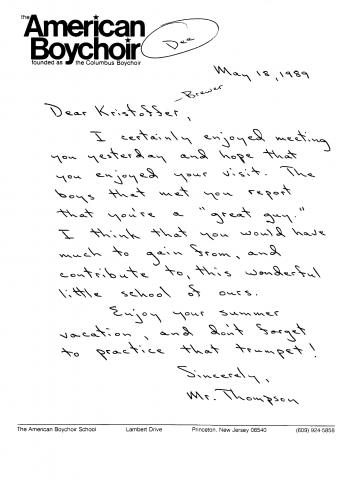 the American
Boychoir
founded as the Columbus Boychoir
Dea
May 18, 1989
Brewer
Dear Kristoffer,
I certainly enjoyed meeting
you yesterday and hope that
you enjoyed your visit. The
boys that met you report
that you're a "great guy."
I think that you would have
much to gain from, and
contribute to, this wonderful
little school of ours.
Enjoy your summer
vacation, and don't forget
to practice that trumpet!
Sincerely,
Mr. Thompson
The American Boychoir School Lambert Drive Princeton, New Jersey 08540 (609) 924-5858